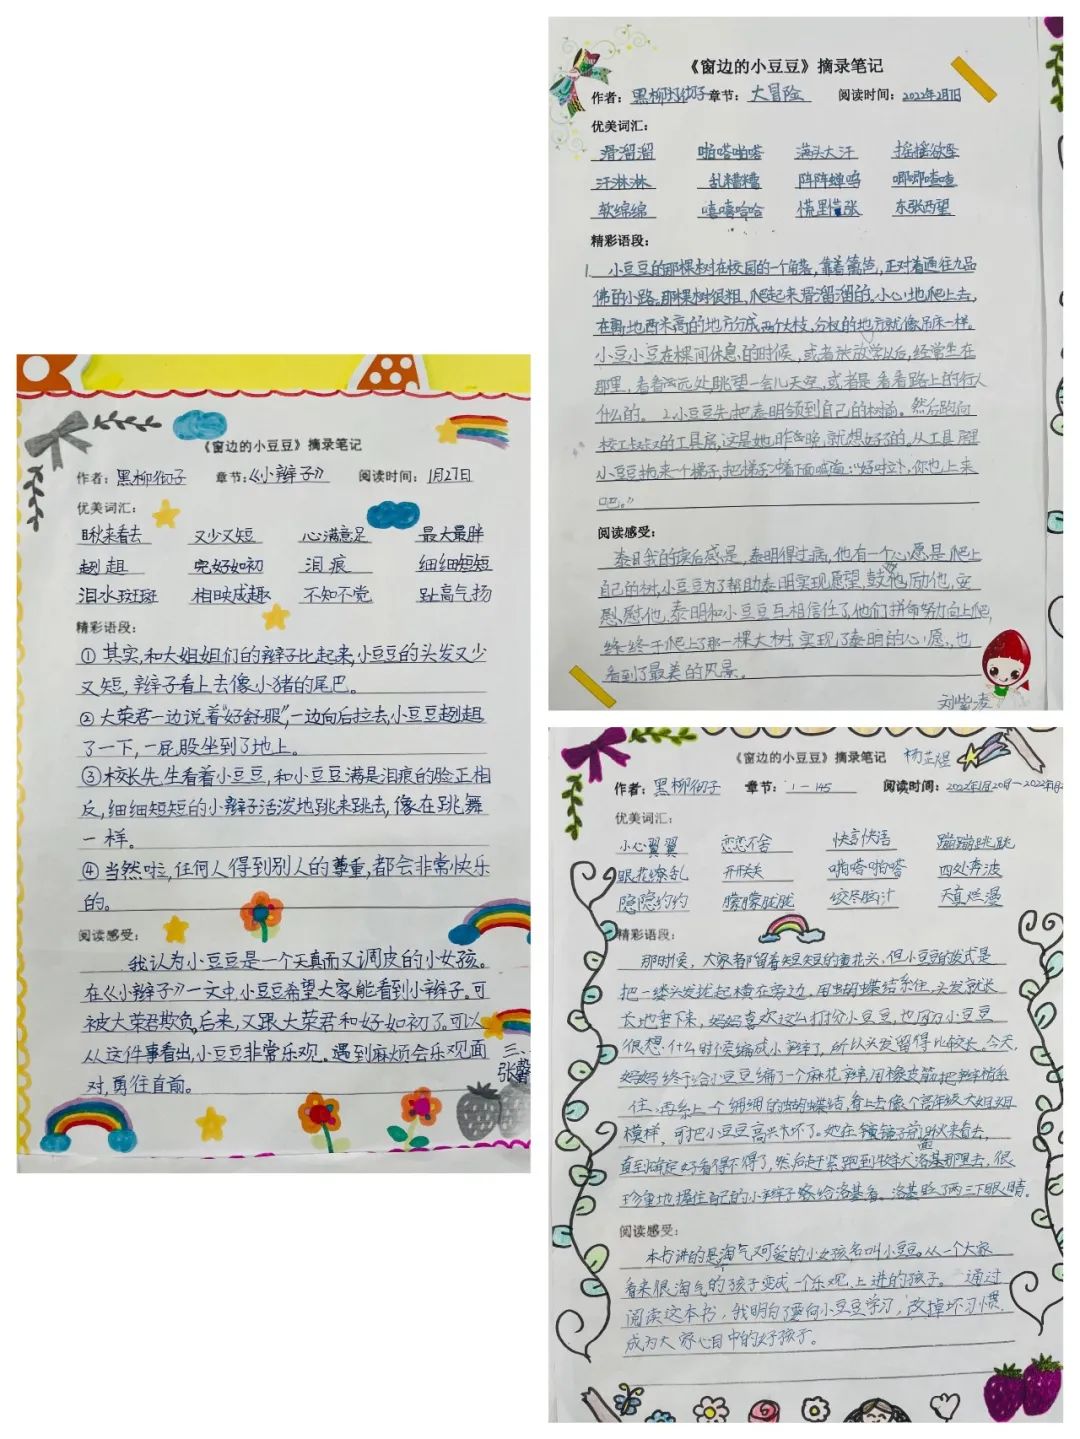 《窗边的小豆豆》摘录笔记
作者：黑柳彻子 章节：《小辫子》 阅读时间：1月27日
优美词汇：
瞅来看去 又少又短 心满意足 最大最胖
趔趄 完好如初 泪痕 细细短短
泪水斑斑 相映成趣 不知不觉 趾高气扬
精彩语段：
① 其实,和大姐姐们的辫子比起来,小豆豆的头发又少
又短,辫子看上去像小猪的尾巴。
② 大荣君一边说着“好舒服”,一边向后拉去,小豆豆趔趄
了一下,一屁股坐到了地上。
③ 校长先生看着小豆豆,和小豆豆满是泪痕的脸正相
反,细细短短的小辫子活泼地跳来跳去,像在跳舞
一样。
④ 当然啦,任何人得到别人的尊重,都会非常快乐
的。
阅读感受：
我认为小豆豆是一个天真而又调皮的小女孩。
在《小辫子》一文中,小豆豆希望大家能看到小辫子。可
被大荣君欺负,后来,又跟大荣君和好如初了。可以
从这件事看出,小豆豆非常乐观。遇到麻烦会乐观面
对,勇往直前。
三、
张馨
《窗边的小豆豆》摘录笔记
作者：黑柳彻子 章节：大冒险 阅读时间：2022年2月1日
优美词汇：
滑溜溜 啪嗒啪嗒 满头大汗 摇摇欲坠
汗淋淋 乱糟糟 阵阵蝉鸣 唧唧喳喳
软绵绵 嘻嘻哈哈 慌里慌张 东张西望
精彩语段：
1. 小豆豆的那棵树在校园的一个角落,靠着篱笆,正对着通往九品
佛的小路。那棵树很粗,爬起来滑溜溜的。小心地爬上去,
在离地两米高的地方分成两个大枝,分杈的地方就像吊床一样。
小豆小豆在棵间休息的时候,或者放学以后,经常坐在
那里,看着远处眺望一会儿天空,或者是看看路上的行人
什么的。 2.小豆豆先把泰明领到自己的树前。然后跑向
校工叔叔的工具房,这是她昨晚就想好了的。从工具房里
小豆豆拖来一个梯子,把梯子冲着下面喊道:“好啦,你也上来
吧。”
阅读感受：
我的读后感是,泰明得过病,他有一个心愿是爬上
自己的树,小豆豆为了帮助泰明实现愿望,鼓他励他,安
慰慰他,泰明和小豆豆互相信任了,他们拼命努力向上爬,
终终于爬上了那一棵大树,实现了泰明的心愿,也
看到了最美的风景。
刘紫凌
《窗边的小豆豆》摘录笔记
杨芷煜
作者：黑柳彻子 章节：1－145 阅读时间：2022年1月20日－2022年1月2
优美词汇：
小心翼翼 恋恋不舍 快言快语 蹦蹦跳跳
眼花缭乱 开开关关 啪嗒啪嗒 四处奔波
隐隐约约 朦朦胧胧 绞尽脑汁 天真烂漫
精彩语段：
那时候,大家都留着短短的童花头,但小豆豆的发式是
把一缕头发拢起横在旁边,用蝴蝶结系住,头发就长
长地垂下来,妈妈喜欢这么打扮小豆豆,也因为小豆豆
很想什么时候编成小辫子,所以头发留得比较长。今天,
妈妈终于给小豆豆编了一个麻花辫,用橡皮筋把辫梢系
住,再系上一个细细的蝴蝶结,看上去像个高年级大姐姐
模样,可把小豆豆高兴坏了。她在镜子前瞅来看去,
直到确定好看得不得了,然后赶紧跑到牧羊犬洛基那里去,很
珍重地握住自己的小辫子梢给洛基看。洛基眨了两三下眼睛。
阅读感受：
本书讲的是淘气又可爱的小女孩名叫小豆豆。从一个大家
看来很淘气的孩子变成一个乐观、上进的孩子。 通过
阅读这本书,我明白了要向小豆豆学习,改掉坏习惯,
成为大家心目中的好孩子。